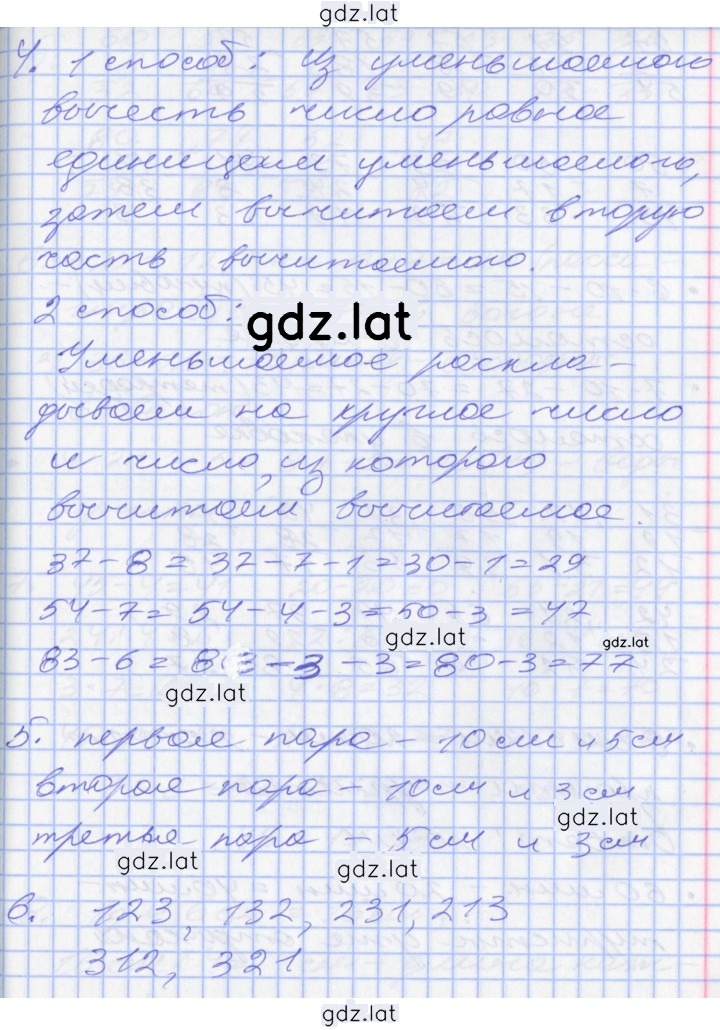 gdz.lat
4. 1 способ: из уменьшаемого
вычесть число равное
единицам уменьшаемого,
затем вычитаем вторую
часть вычитаемого.
2 способ:
gdz.lat
Уменьшаемое раскла-
дываем на круглое число
и число, из которого
вычитаем вычитаемое.
37-8=37-7-1=30-1=29
54-7=54-4-3=50-3=47
gdz.lat
gdz.lat
83-6=83-3-3=80-3=77
gdz.lat
5. первая пара - 10 см и 5 см
вторая пара - 10 см и 3 см
gdz.lat
третья пара - 5 см и 3 см
gdz.lat
gdz.lat
6. 123, 132, 231, 213
312, 321
gdz.lat